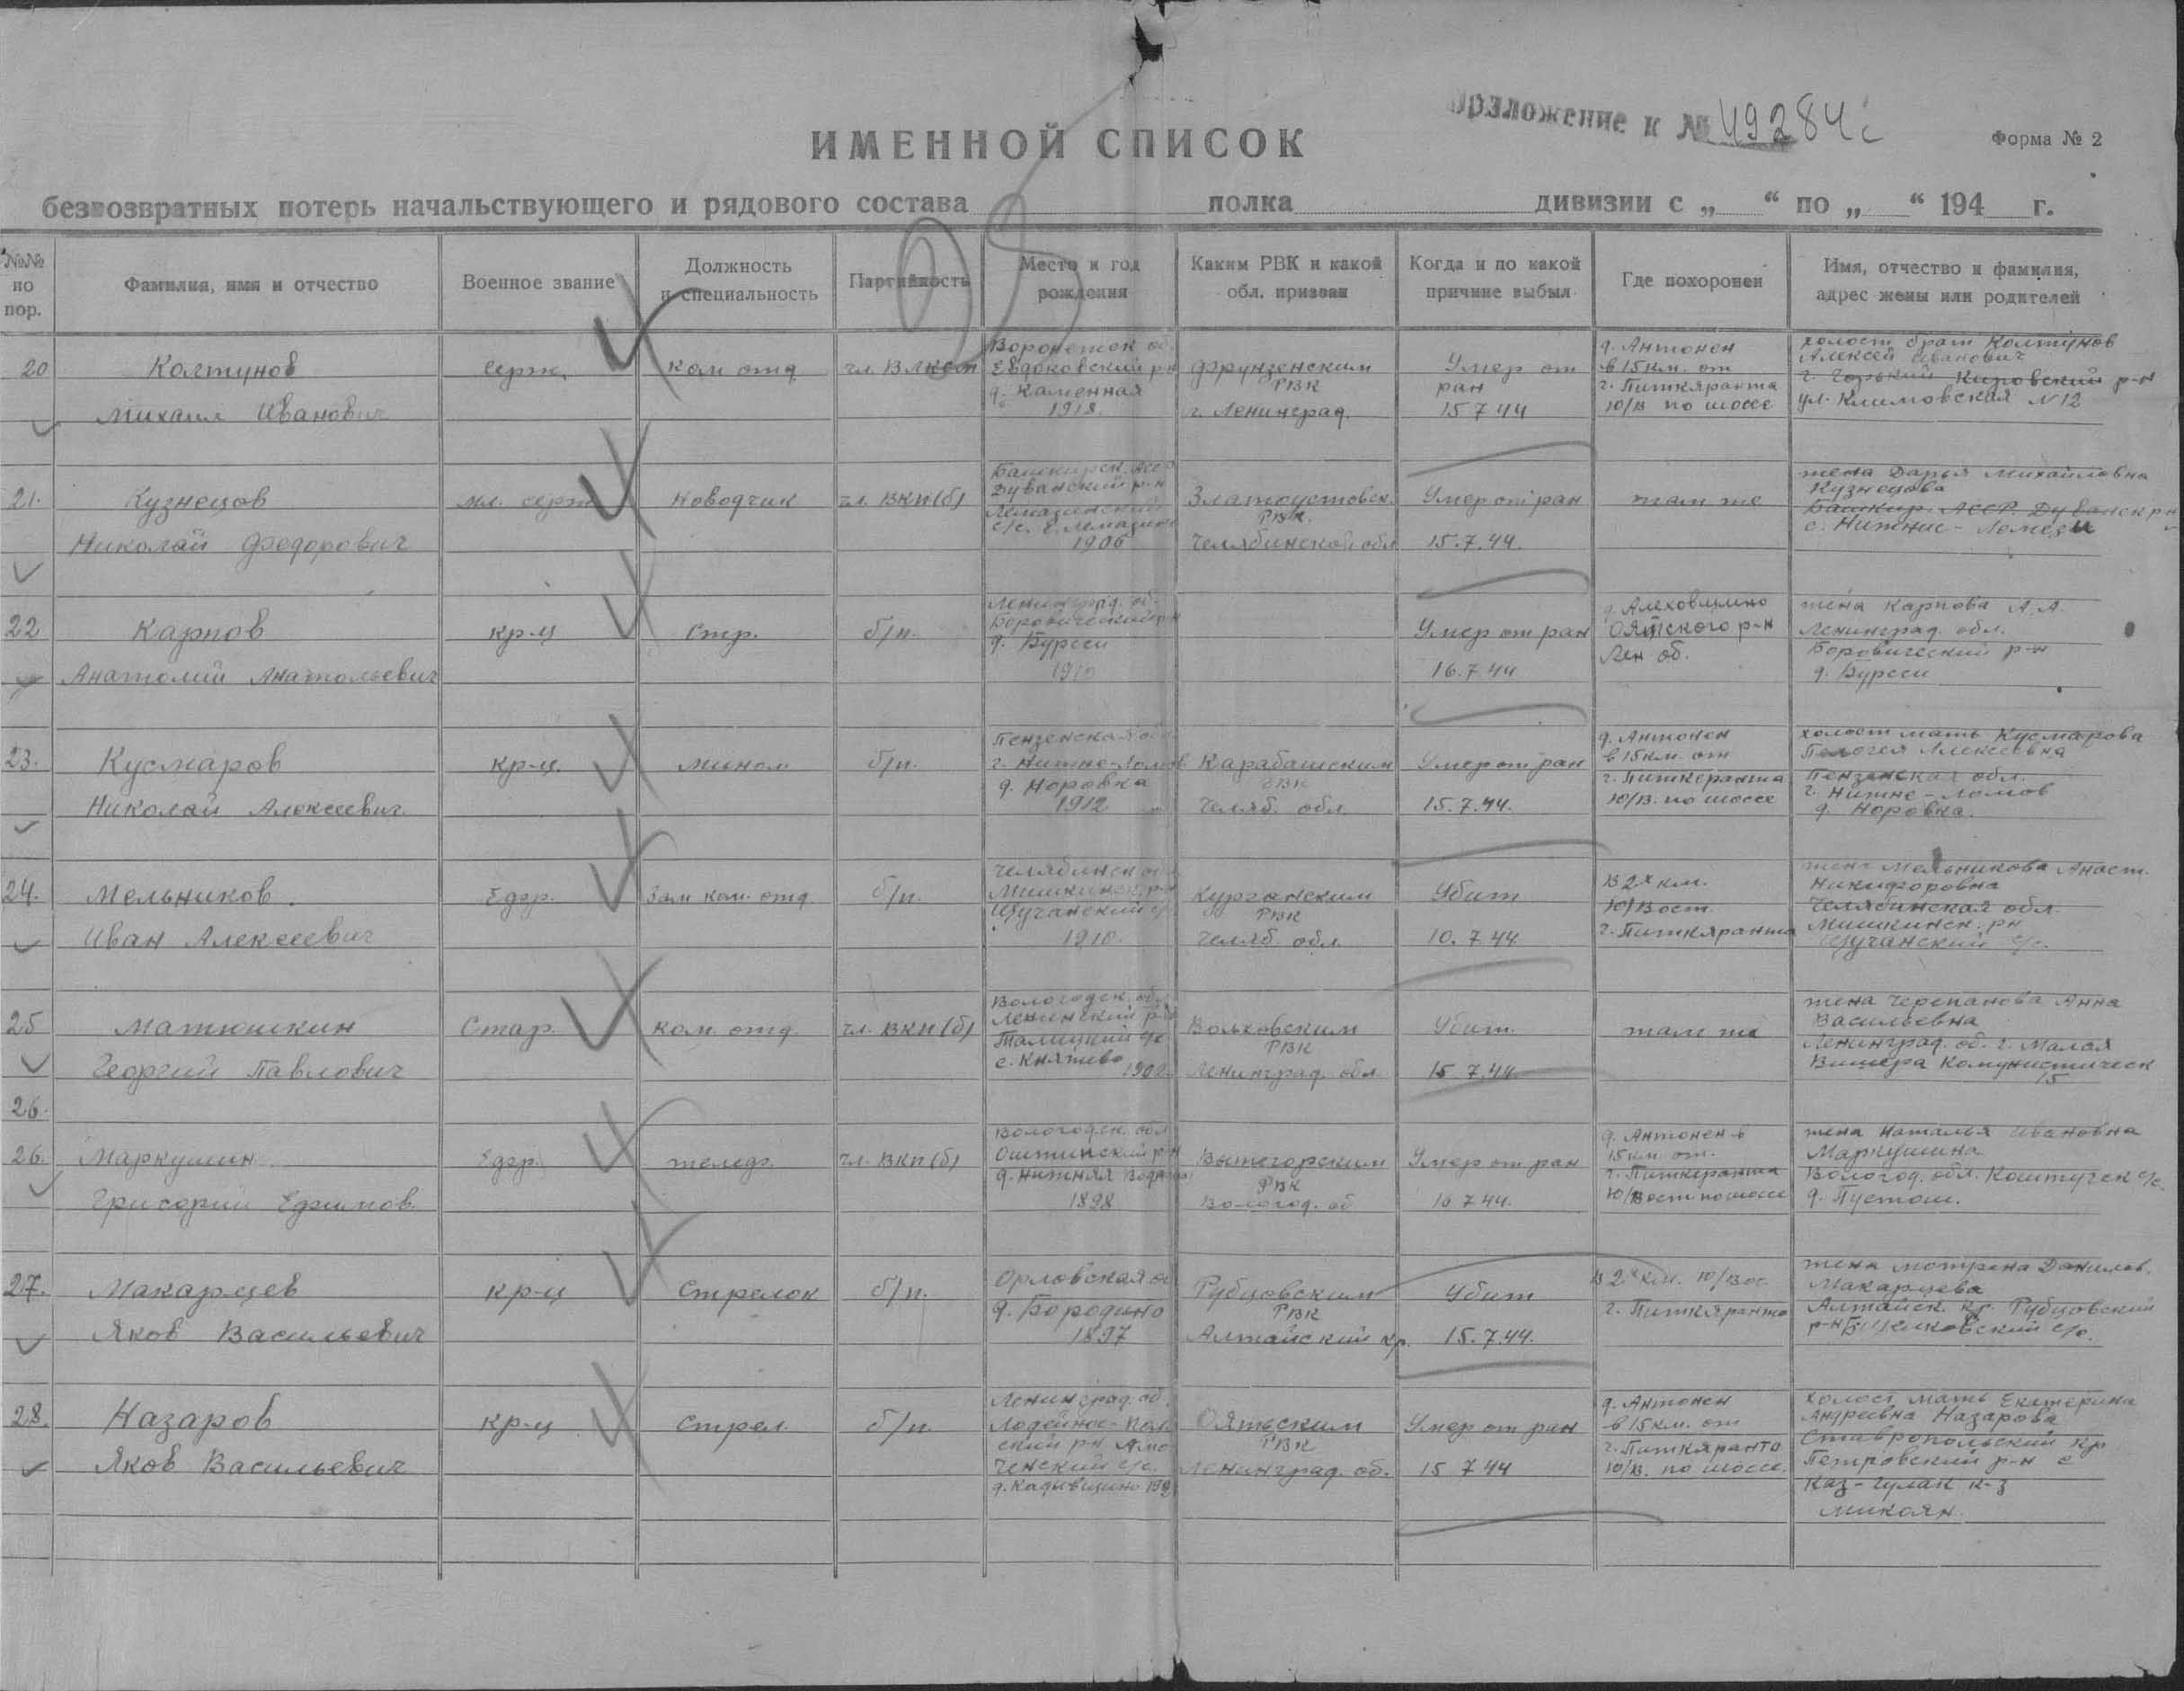 Приложение к № 49284с
ИМЕННОЙ СПИСОК
Форма № 2
безвозвратных потерь начальствующего и рядового состава полка дивизии с „ “ по „ “ 194 г.
№№ по пор.
Фамилия, имя и отчество
Военное звание
Должность и специальность
Партийность
Место и год рождения
Каким РВК и какой обл. призван
Когда и по какой причине выбыл
Где похоронен
Имя, отчество и фамилия, адрес жены или родителей
20
Колтунов
Михаил Иванович
серж.
ком отд
чл. ВЛКСМ
Воронежск об.
Евдаковский р-н
д. Каменная
1918.
Фрунзенским
РВК
г. Ленинград.
Умер от
ран
15 7 44
д. Антонен
в 15 км. от
г. Питкяранта
ю/в по шоссе
холост брат Колтунов
Алексей Иванович
г. Горький Кировский р-н
ул. Климовская N 12
21.
Кузнецов
Николай Федорович
мл. серж
Наводчик
чл. ВКП(б)
Башкирск. АССР
Дуванский р-н
1906
Златоустовск.
РВК.
Челябинской обл
Умер от ран
15.7.44.
там же
жена Дарья Михайловна
Кузнецова
Башкир. АССР. Дуванск р-н
с. Нижние-Лемези
22
Карпов
Анатолий Анатольевич
кр-ц
Стр.
б/п.
Ленинград. об.
Боровический р-н
д. Буреси
1910
Умер от ран
16.7.44
д. Алеховщино
Оятского р-н
Лен об.
жена Карпова А.А.
Ленинград. обл.
Боровический р-н
д. Буреси
23.
Кусмаров
Николай Алексеевич.
кр-ц.
Мином
б/п.
Пензенская об
г. Нижне-Ломов
д. Норовка
1912
Карабашским
РВК
Челяб. обл.
Умер от ран
15.7.44.
д. Антонен
в 15 км. от
г. Питкеранта
ю/в. по шоссе
холост мать Кусмарова
Пелогея Алексеевна
Пензенская обл.
г. Нижне-Ломов
д. Норовка.
24.
Мельников.
Иван Алексеевич
Ефр.
Зам ком. отд.
б/п.
Челябинск об
Мишкинск. р-н
Щучанский с/с
1910.
Курганским
РВК
Челяб. обл.
Убит
10. 7 44
В 2х км.
ю/вост
г. Питкяранта
жена Мельникова Анаст.
Никифоровна
Челябинская обл.
Мишкинск. рн
Щучанский с/с.
25
Матюшкин
Георгий Павлович
Стар.
ком. отд.
чл. ВКП(б)
Вологодск. об.
Ленинский р-н
Талицкий с/с
с. Княжево
Волховским
РВК
Ленинград. обл
Убит.
15 7.44.
там же
жена Черепанова Анна
Васильевна
Ленинград. об. г. Малая
Вишера Комунистическ
15
26.
26.
Маркушин
Григорий Ефимов.
Ефр.
телеф.
чл. ВКП(б)
Вологодск. обл
Оштинский р-н
1898
Вытегорским
РВК
Вологод. об
Умер от ран
16 7 44.
д. Антонен в
15 км от.
г. Питкеранта
ю/вост по шоссе
жена Наталья Ивановна
Маркушина
Вологод. обл. Коштугск с/с.
д. Пустош.
27.
Макарцев
Яков Васильевич
кр-ц
Стрелок
б/п.
Орловская об
д. Бородино
1897
Рубцовским
РВК
Алтайский кр.
Убит
15.7.44.
В 2х км. ю/вос.
г. Питкяранто
жена Мотрена Данилов.
Макарцева
Алтайск. кр. Рубцовский
28.
Назаров
Яков Васильевич
кр-ц
Стрел.
б/п.
Ленинград. об.
Лодейное-Поль
ский р-н
д. Кадывщино
Оятьским
РВК
Ленинград. об.
Умер от ран
15 7 44
д. Антонен
в 15 км. от
г. Питкяранто
ю/в. по шоссе.
холост мать Екатерина
Андреевна Назарова
Ставропольский кр
Петровский р-н с
Каз-Гулак к-з
Микоян.